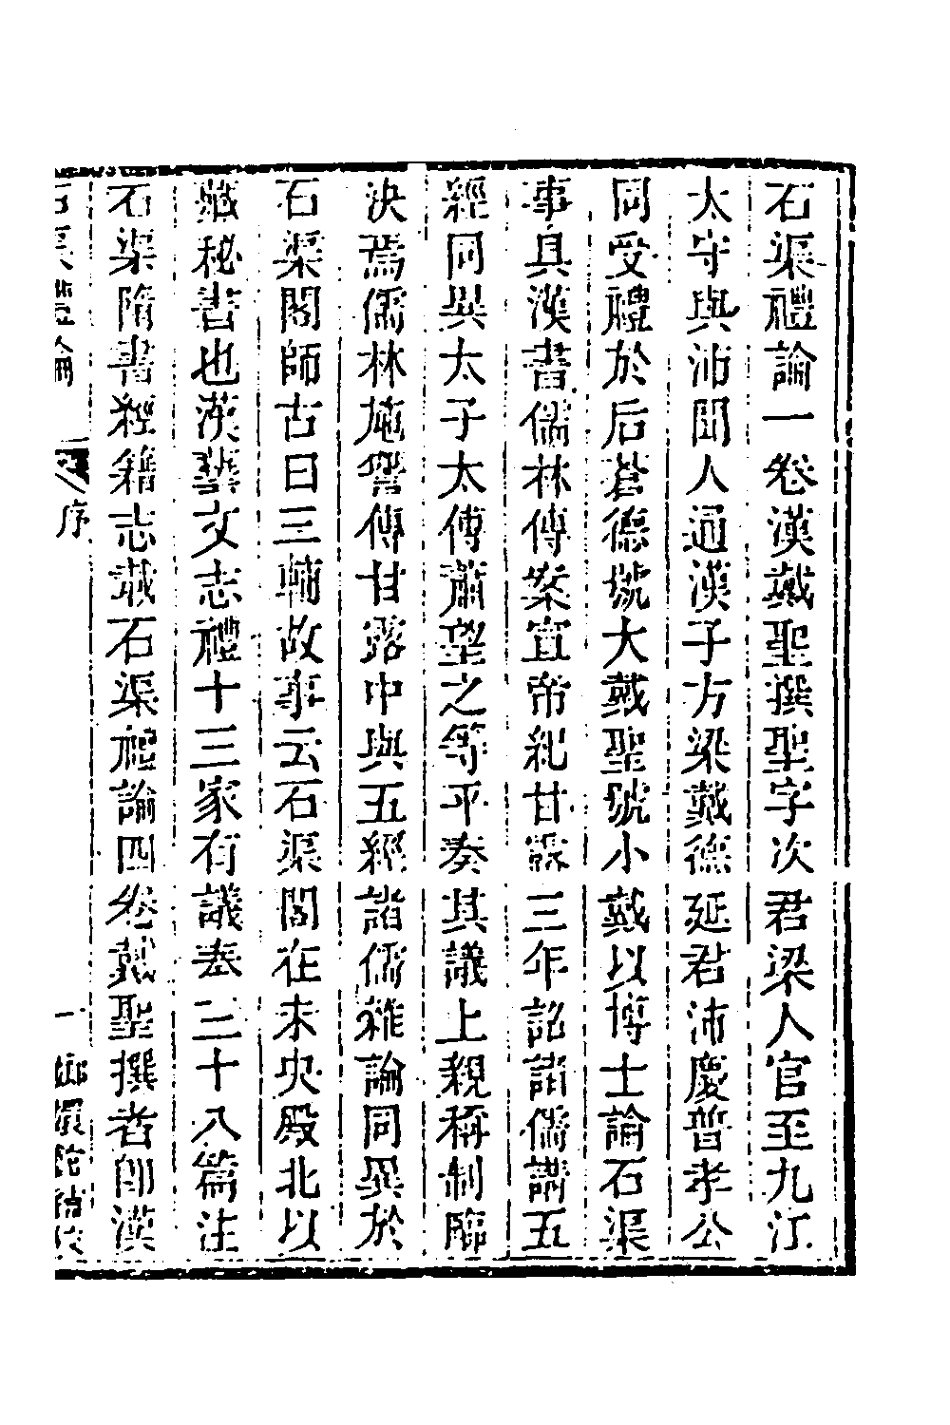 石渠禮論一卷漢戴聖撰聖字次君梁人官至九江
太守與沛聞人通漢子方梁戴德延君沛慶普孝公
同受禮於后蒼德號大戴聖號小戴以博士論石渠
事具漢書儒林傳案宣帝紀甘露三年詔諸儒講五
經同異太子太傅蕭望之等平奏其議上親稱制臨
決焉儒林施讐傳甘露中與五經諸儒雜論同異於
石渠閣師古曰三輔故事云石渠閣在未央殿北以
藏秘書也漢藝文志禮十三家有議奏三十八篇注
石渠隋書經籍志載石渠禮論四卷戴聖撰者卽漢
石渠禮論 序 一 嫏嬛館補校